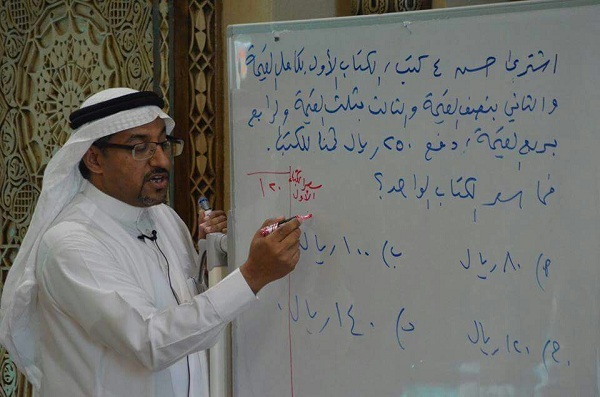 اشترى حسن ٤ كتب، الكتاب الأول بكامل القيمة
والثاني بنصف القيمة والثالث بثلث القيمة والرابع
بربع القيمة، دفع ٢٥٠ ريال ثمنا للكتب.
فما سعر الكتاب الواحد؟
سعر الكتاب الأول
١٢٠
أ) ٨٠ ريال
ب) ١٠٠ ريال
ج) ١٢٠ ريال
د) ١٤٠ ريال